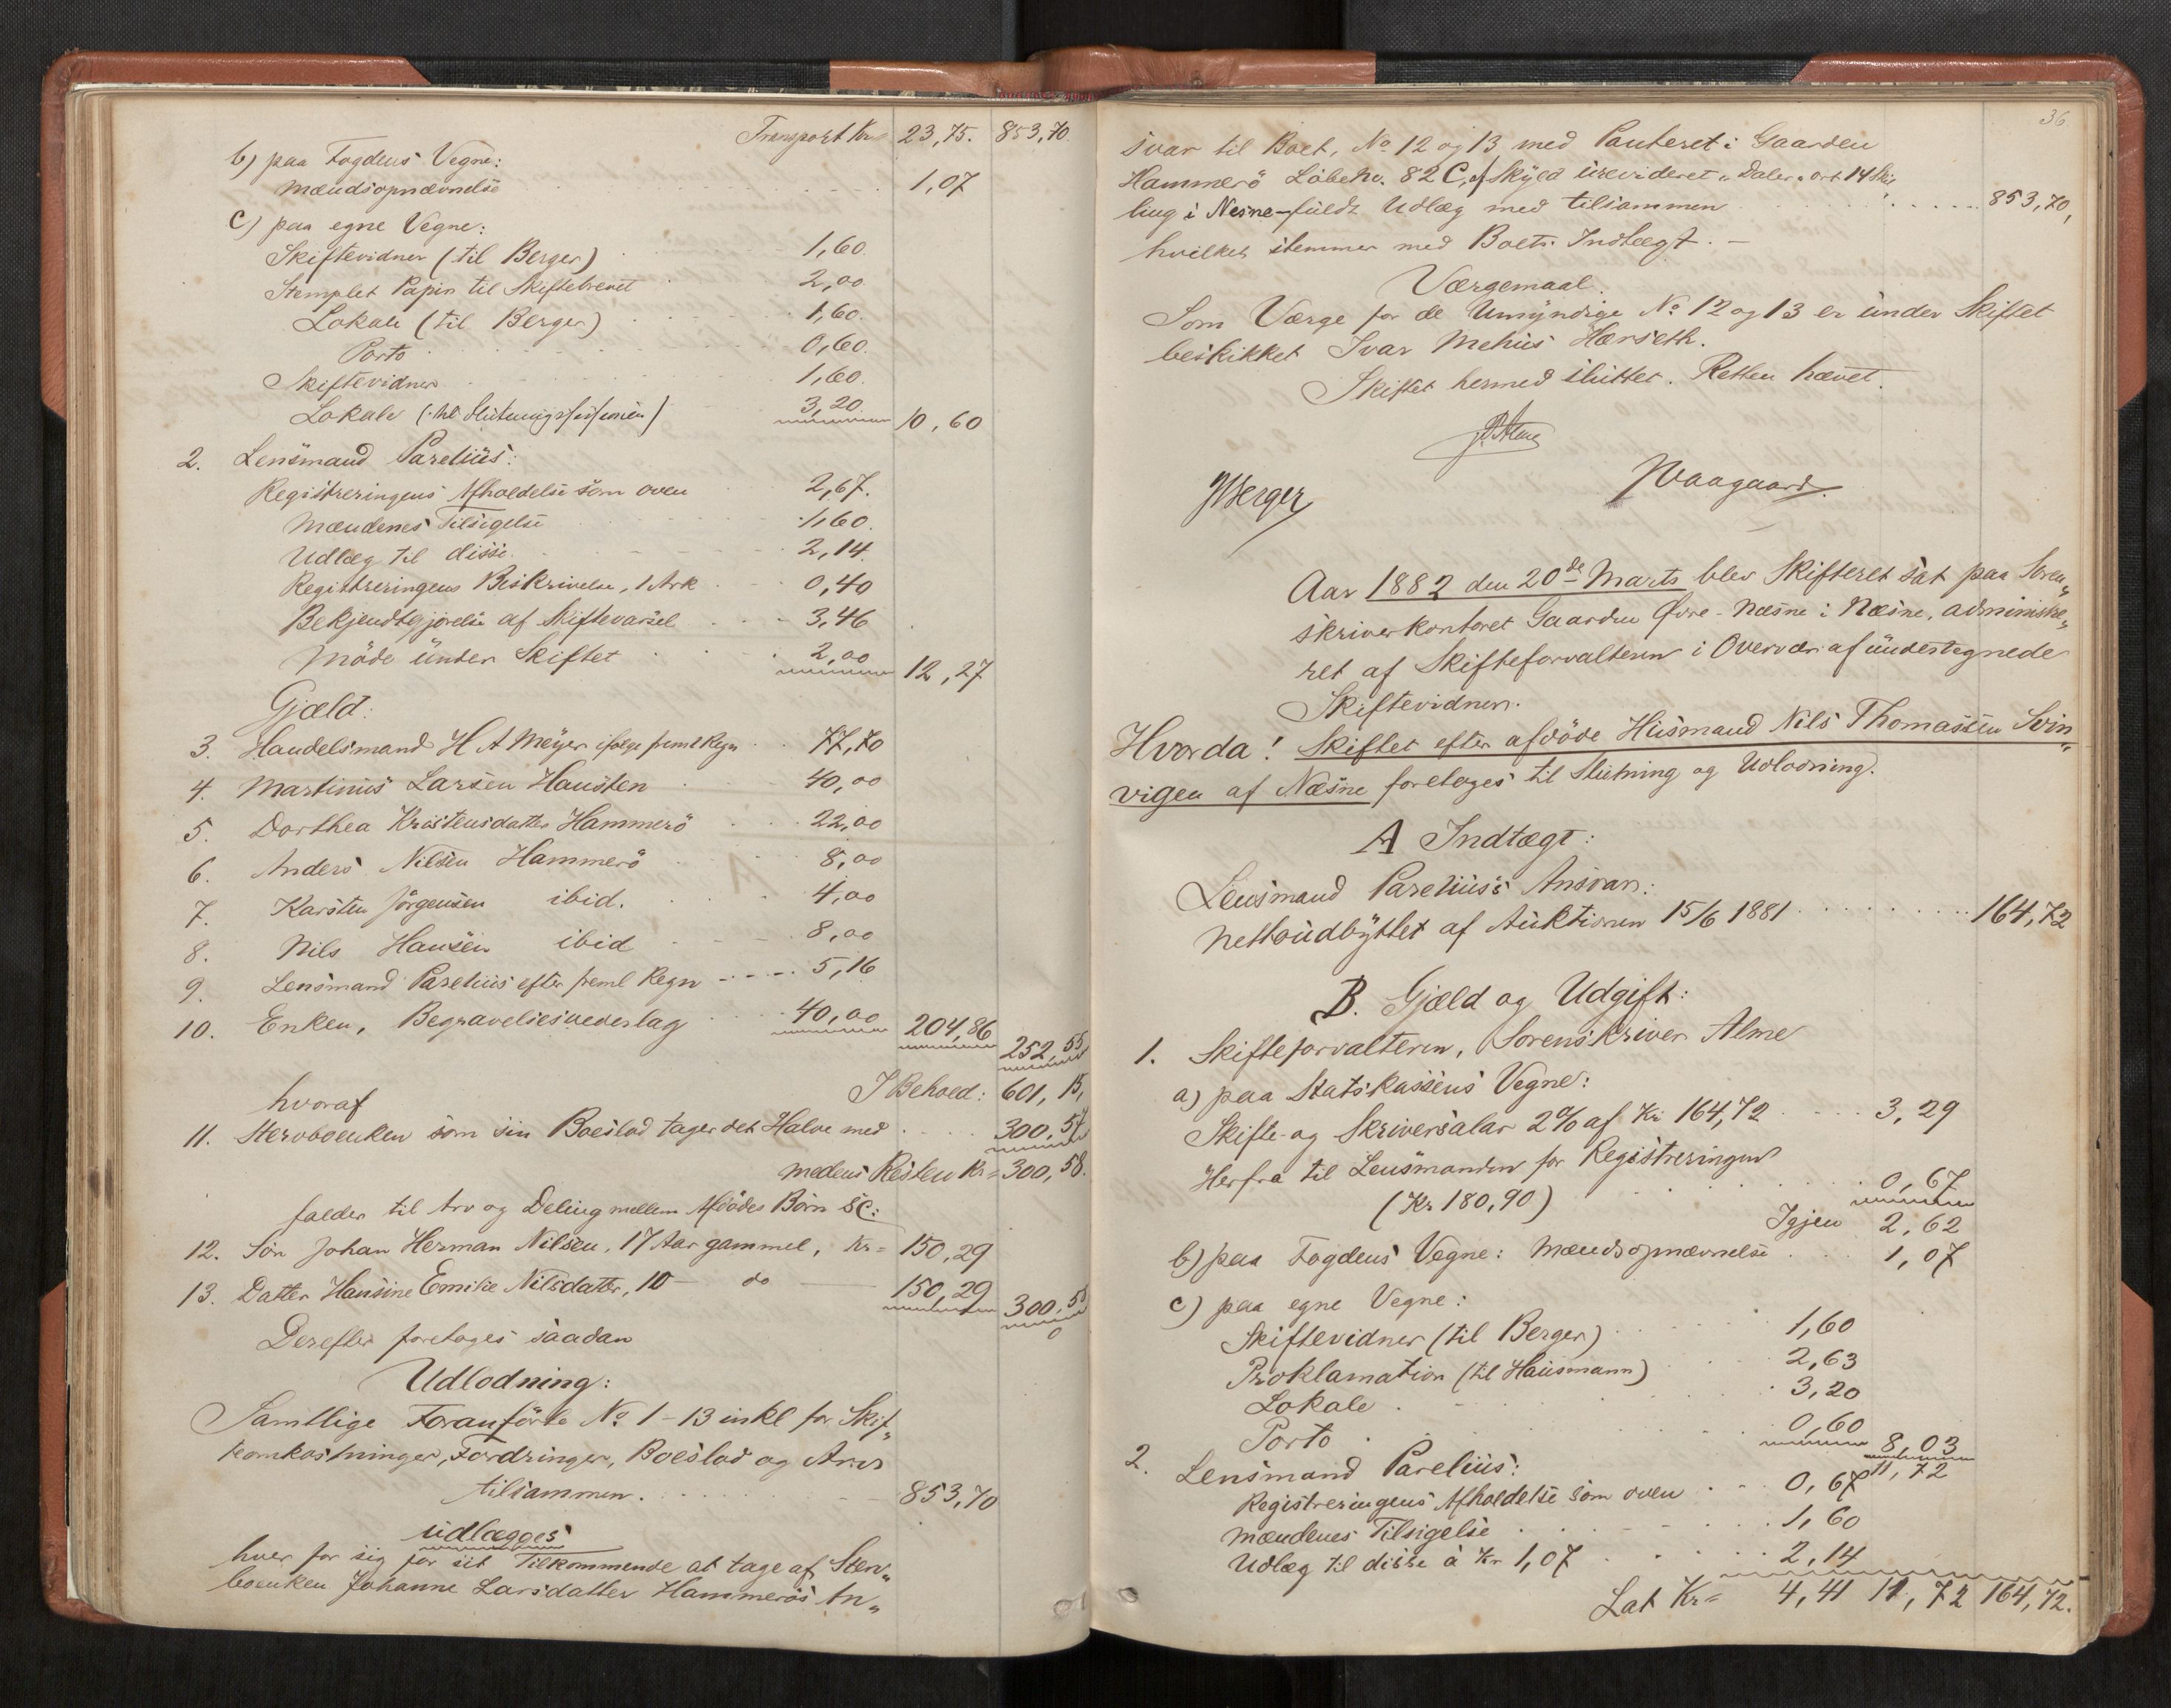 Transport Kr= 23,75. 853,70.
b) paa Fogdens Vegne:
Mændsopnævnelse 1,07
c) paa egne Vegne:
Skiftevidner (til Berger) 1,60
Stemplet Papir til Skiftebrevet 2,00
Lokale (til Berger) 1,60.
Porto 0,60.
Skiftevidner 1,60.
Lokale (til Slutningssessionen) 3,20 10,60
2. Lensmand Parelius:
Registreringens Afholdelse som oven 2,67.
Mændenes Tilsigelse 1,60.
Udlæg til disse 2,14.
Registreringens Beskrivelse, 1 Ark 0,40
Bekjendtgjørelse af Skiftevarsel 3,46
Möde under Skiftet 2,00 12,27
Gjæld:
3. Handelsmand H A Meyer ifølge freml Regn 77,70
4. Martinus Larsen Hausten 40,00
5. Dorthea Kristensdatter Hammerö 22,00
6. Anders Nilsen Hammerö 8,00
7. Karsten Jörgensen ibid. 4,00
8. Nils Hansen ibid 8,00
9. Lensmand Parelius efter freml Regn 5,16
10. Enken, Begravelsesvederlag 40,00 204,86 252,55
I Behold: 601,15,
hvoraf
11. Stervboenken som sin Boeslod tager det Halve med 300,57
medens Resten Kr= 300,58.
falder til Arv og Deling mellem Afdødes Börn sc:
12. Sön Johan Herman Nilsen, 17 Aar gammel, Kr= 150,29
13. Datter Hansine Emilie Nilsdatter, 10 — do — 150,29 300,58
0
Derefter foretoges saadan
Udlodning:
Samtlige Foranförte No 1-13 inkl for Skif„
teomkostninger, Fordringer, Boeslod og Arv
tilsammen. 853,70
udlægges
hver for sig for sit Tilkommende at tage af Sterv„
boenken Johanne Larsdatter Hammerös An„
36
svar til Boet, No 12 og 13 med Panteret i Gaarden
Hammerö Löbeno. 82 C, af Skyld urevideret „ Daler „ ort 14 Skil„
ling i Nesne-fuldt Udlæg med tilsammen 853,70,
hvilket stemmer med Boets Indtægt. —
Værgemaal.
Som Værge for de Umyndige No 12 og 13 er under Skiftet
beskikket Ivar Mehus Hærseth.
Skiftet hermed sluttet. Retten hævet.
Alme
JBerger
Waagaard.
Aar 1882 den 20de Marts blev Skifteret sat paa Soren„
skriverkontoret Gaarden Øvre-Næsne i Næsne, administre„
ret af Skifteforvalteren i Overvær af undertegnede
Skiftevidner.
Hvorda! Skiftet efter afdöde Husmand Nils Thomassen Svin„
vigen af Næsne foretoges til Slutning og Udlodning.
A Indtægt:
Lensmand Parelius's Ansvar:
Nettoudbyttet af Auktionen 15/6 1881 164,72
B. Gjæld og Udgift:
1. Skifteforvalteren, Sorenskriver Alme
a) paa Statskassens Vegne:
Skifte- og Skriversalar 2% af Kr 164,72 3,29
Herfra til Lensmanden for Registreringen
(Kr 180,90) 0,67
Igjen 2,62
b) paa Fogdens Vegne: Mændsopnævnelse 1,07
c) paa egne Vegne:
Skiftevidner (til Berger) 1,60
Proklamation (til Hausmann) 2,63
Lokale 3,20
Porto 0,60 8,03
11,72
2. Lensmand Parelius:
Registreringens Afholdelse som oven 0,67
Mændenes Tilsigelse 1,60
Udlæg til disse à Kr 1,07 2,14
Lat Kr= 4,41 11,72 164,72.